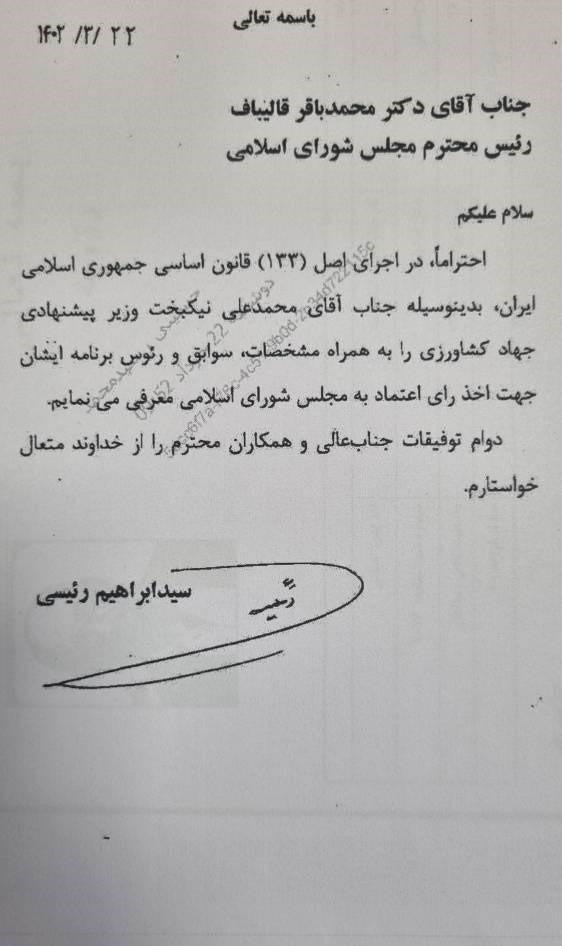 باسمه تعالی
۱۴۰۲ /۳/ ۲۲
جناب آقای دکتر محمدباقر قالیباف
رئیس محترم مجلس شورای اسلامی
سلام علیکم
احتراماً، در اجرای اصل (۱۳۳) قانون اساسی جمهوری اسلامی
ایران، بدینوسیله جناب آقای محمدعلی نیکبخت وزیر پیشنهادی
جهاد کشاورزی را به همراه مشخصات، سوابق و رئوس برنامه ایشان
جهت اخذ رای اعتماد به مجلس شورای اسلامی معرفی می نمایم.
دوام توفیقات جنابعالی و همکاران محترم را از خداوند متعال
خواستارم.
سیدابراهیم رئیسی